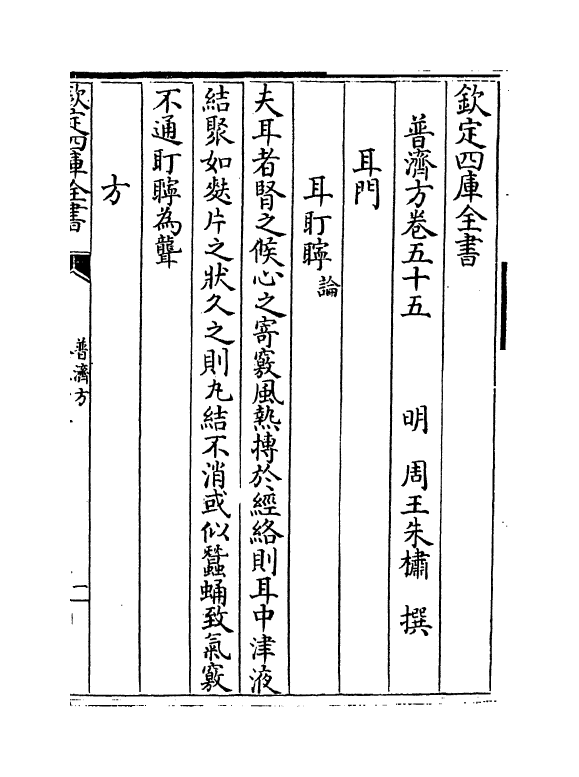 欽定四庫全書
普濟方卷五十五　明　周王朱橚　撰
耳門
耳耵聹論
夫耳者腎之候心之寄竅風熱摶於經絡則耳中津液
結聚如麩片之狀久之則丸結不消或似蠶蛹致氣竅
不通耵聹為聾
方
欽定四庫全書
普濟方